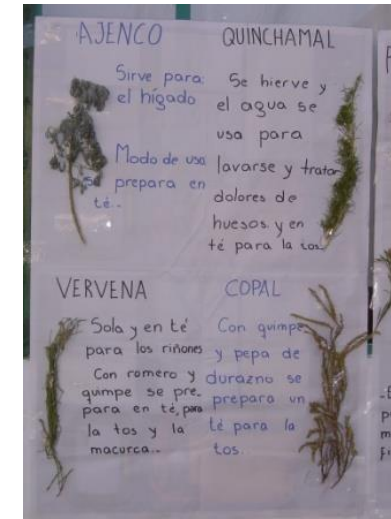 AJENCO
Sirve para:
el hígado
Modo de uso
se prepara en
té..
QUINCHAMAL
Se hierve y
el agua se
usa para
lavarse y tratar
dolores de
huesos y en
té para la tos.
VERVENA
Sola y en té
para los riñones
Con romero y
qumpe se pre-
para en té, para
la tos y la
macurca..
COPAL
Con quimpe
y pepa de
durazno se
prepara un
té para la
tos.